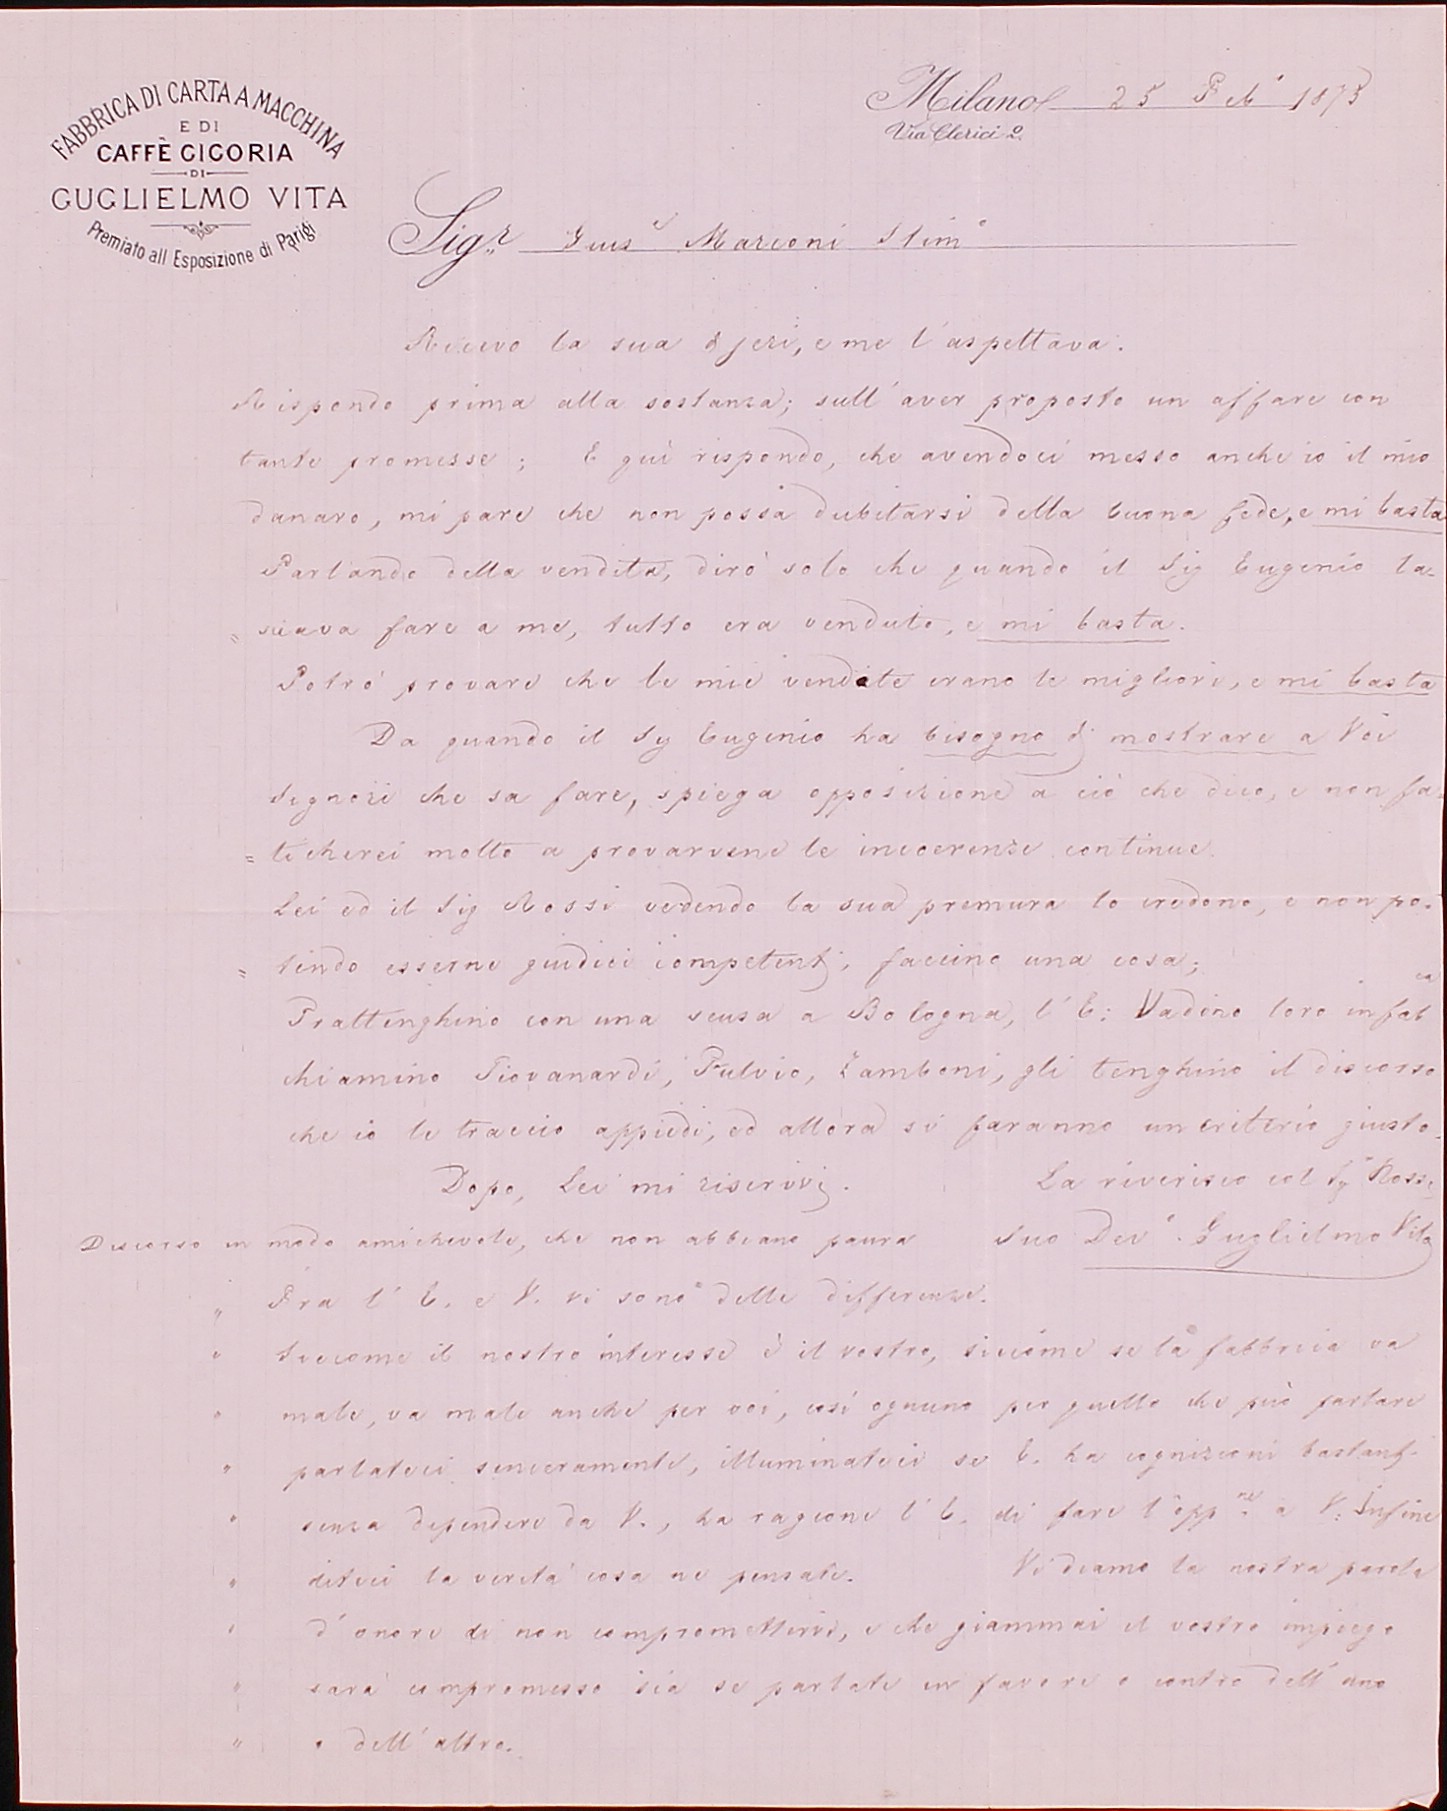 FABBRICA DI CARTA A MACCHINA
E DI
CAFFÈ CICORIA
DI
GUGLIELMO VITA
Premiato all Esposizione di Parigi
Milano 25 Feb° 1873
Via Clerici 2
Sig.r Gius.e Marconi Stim°
Ricevo la sua d jeri, e me l'aspettava.
Rispondo prima alla sostanza; sull'aver proposto un affare con
tante promesse; E quì rispondo, che avendoci messo anche io il mio
danaro, mi pare che non possa dubitarsi della buona fede, e mi basta
Parlando della vendita, dirò solo che quando il Sig Eugenio la-
= sciava fare a me, tutto era venduto, e mi basta.
Potrò provare che le mie vendite erano le migliori, e mi basta
Da quando il Sig Eugenio ha bisogno di mostrare a Voi
Signori che sa fare, spiega opposizione a ciò che dico, e non fa-
= ticherei molto a provarvene le incoerenze continue.
Lei ed il Sig Rossi vedendo la sua premura lo credono, e non po-
= tendo esserne giudici competenti, faccino una cosa;
Trattenghino con una scusa a Bologna, l'E: Vadino loro in fab.ca
chiamino Piovanardi, Fulvio, Zamboni, gli tenghino il discorso
che io le traccio appiedi, ed allora si faranno un criterio giusto.
Dopo, Lei mi riscrivi. La riverisco col Sig.r Rossi
Discorso in modo amichevole, che non abbiano paura Suo Dev° Guglielmo Vita
" Fra l'E. e V. vi sono delle differenze.
" Siccome il nostro interesse è il vostro, siccome se la fabbrica va
" male, va male anche per voi, così ognuno per quello che può parlare
" parlateci sinceramente, illuminateci se E. ha cognizioni bastanti
" senza dipendere da V., ha ragione l'E. di fare l'opp.ne a V: Infine
" diteci la verità cosa ne pensate. Vi diamo la nostra parola
" d'onore di non compromettervi, e che giammai il vostro impiego
" sarà compromesso sia se parlate in favore o contro dell'uno
" o dell'altro.